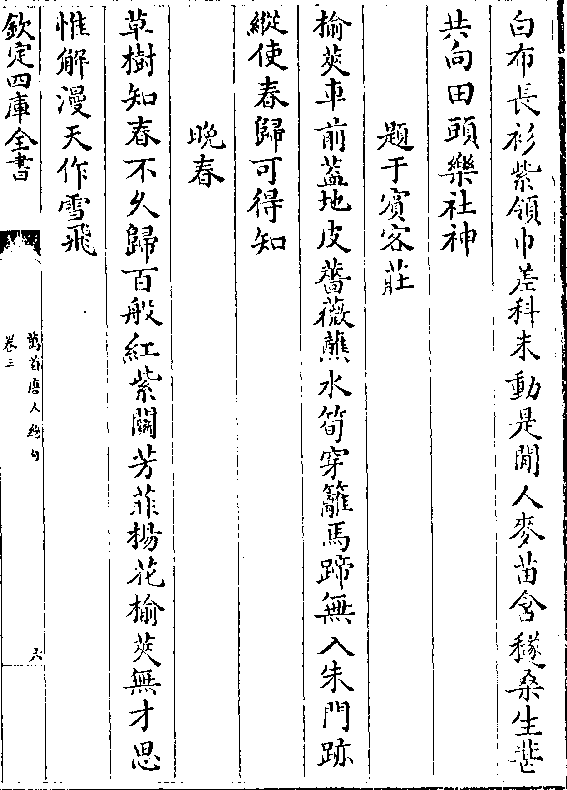 白布長衫紫領巾差科未動是閒人麥苗含穟桑生葚
共向田頭樂社神
題于賓客莊
榆莢車前葢地皮薔薇蘸水筍穿籬馬蹄無入朱門跡
縱使春歸可得知
晚春
草樹知春不久歸百般紅紫鬭芳菲楊花榆莢無才思
惟解漫天作雪飛
欽定四庫全書
萬首唐人絕句
卷三
六